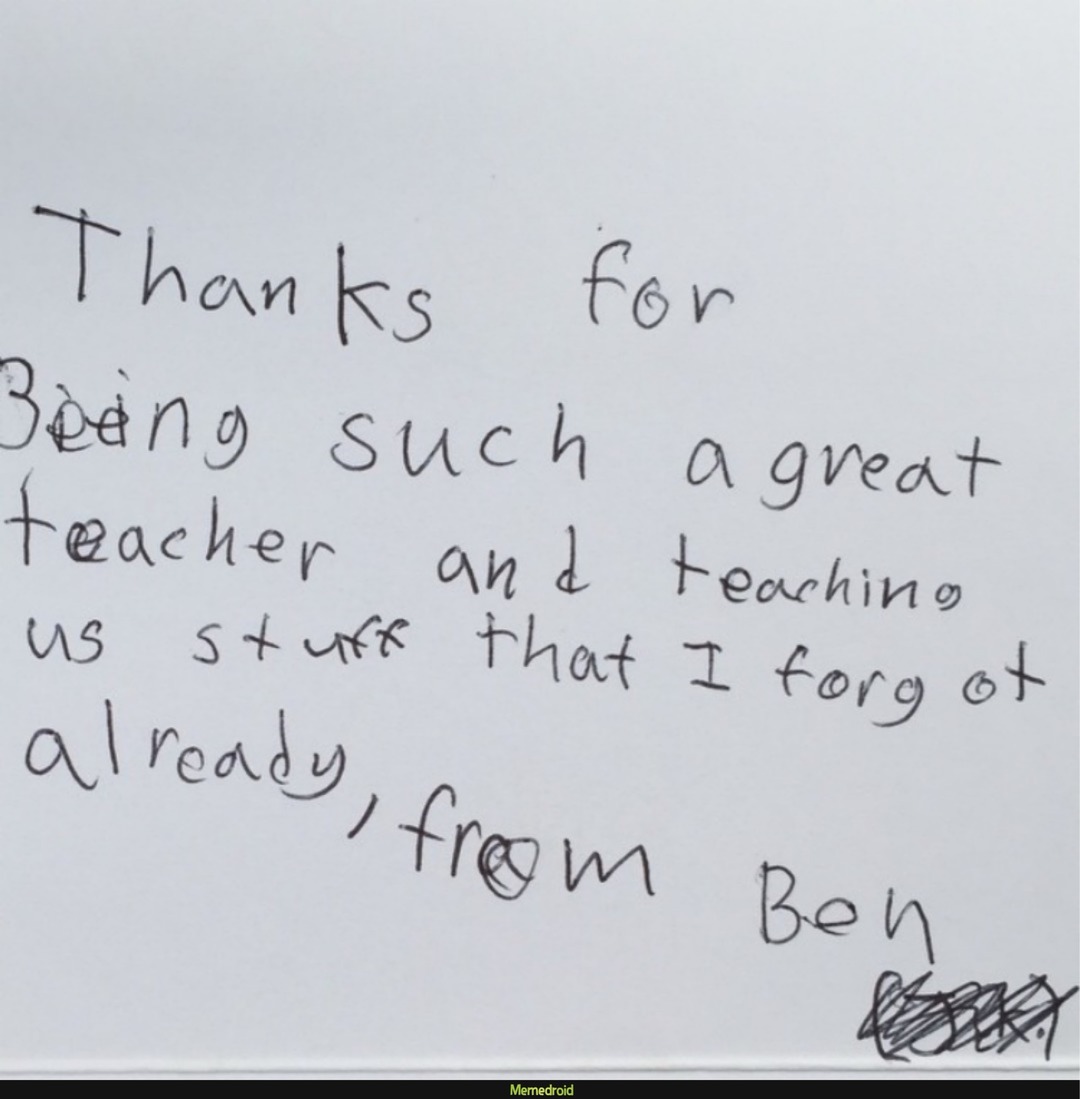 Thanks for
Being such a great
teacher and teaching
us stuff that I forgot
already, from Ben
Memedroid